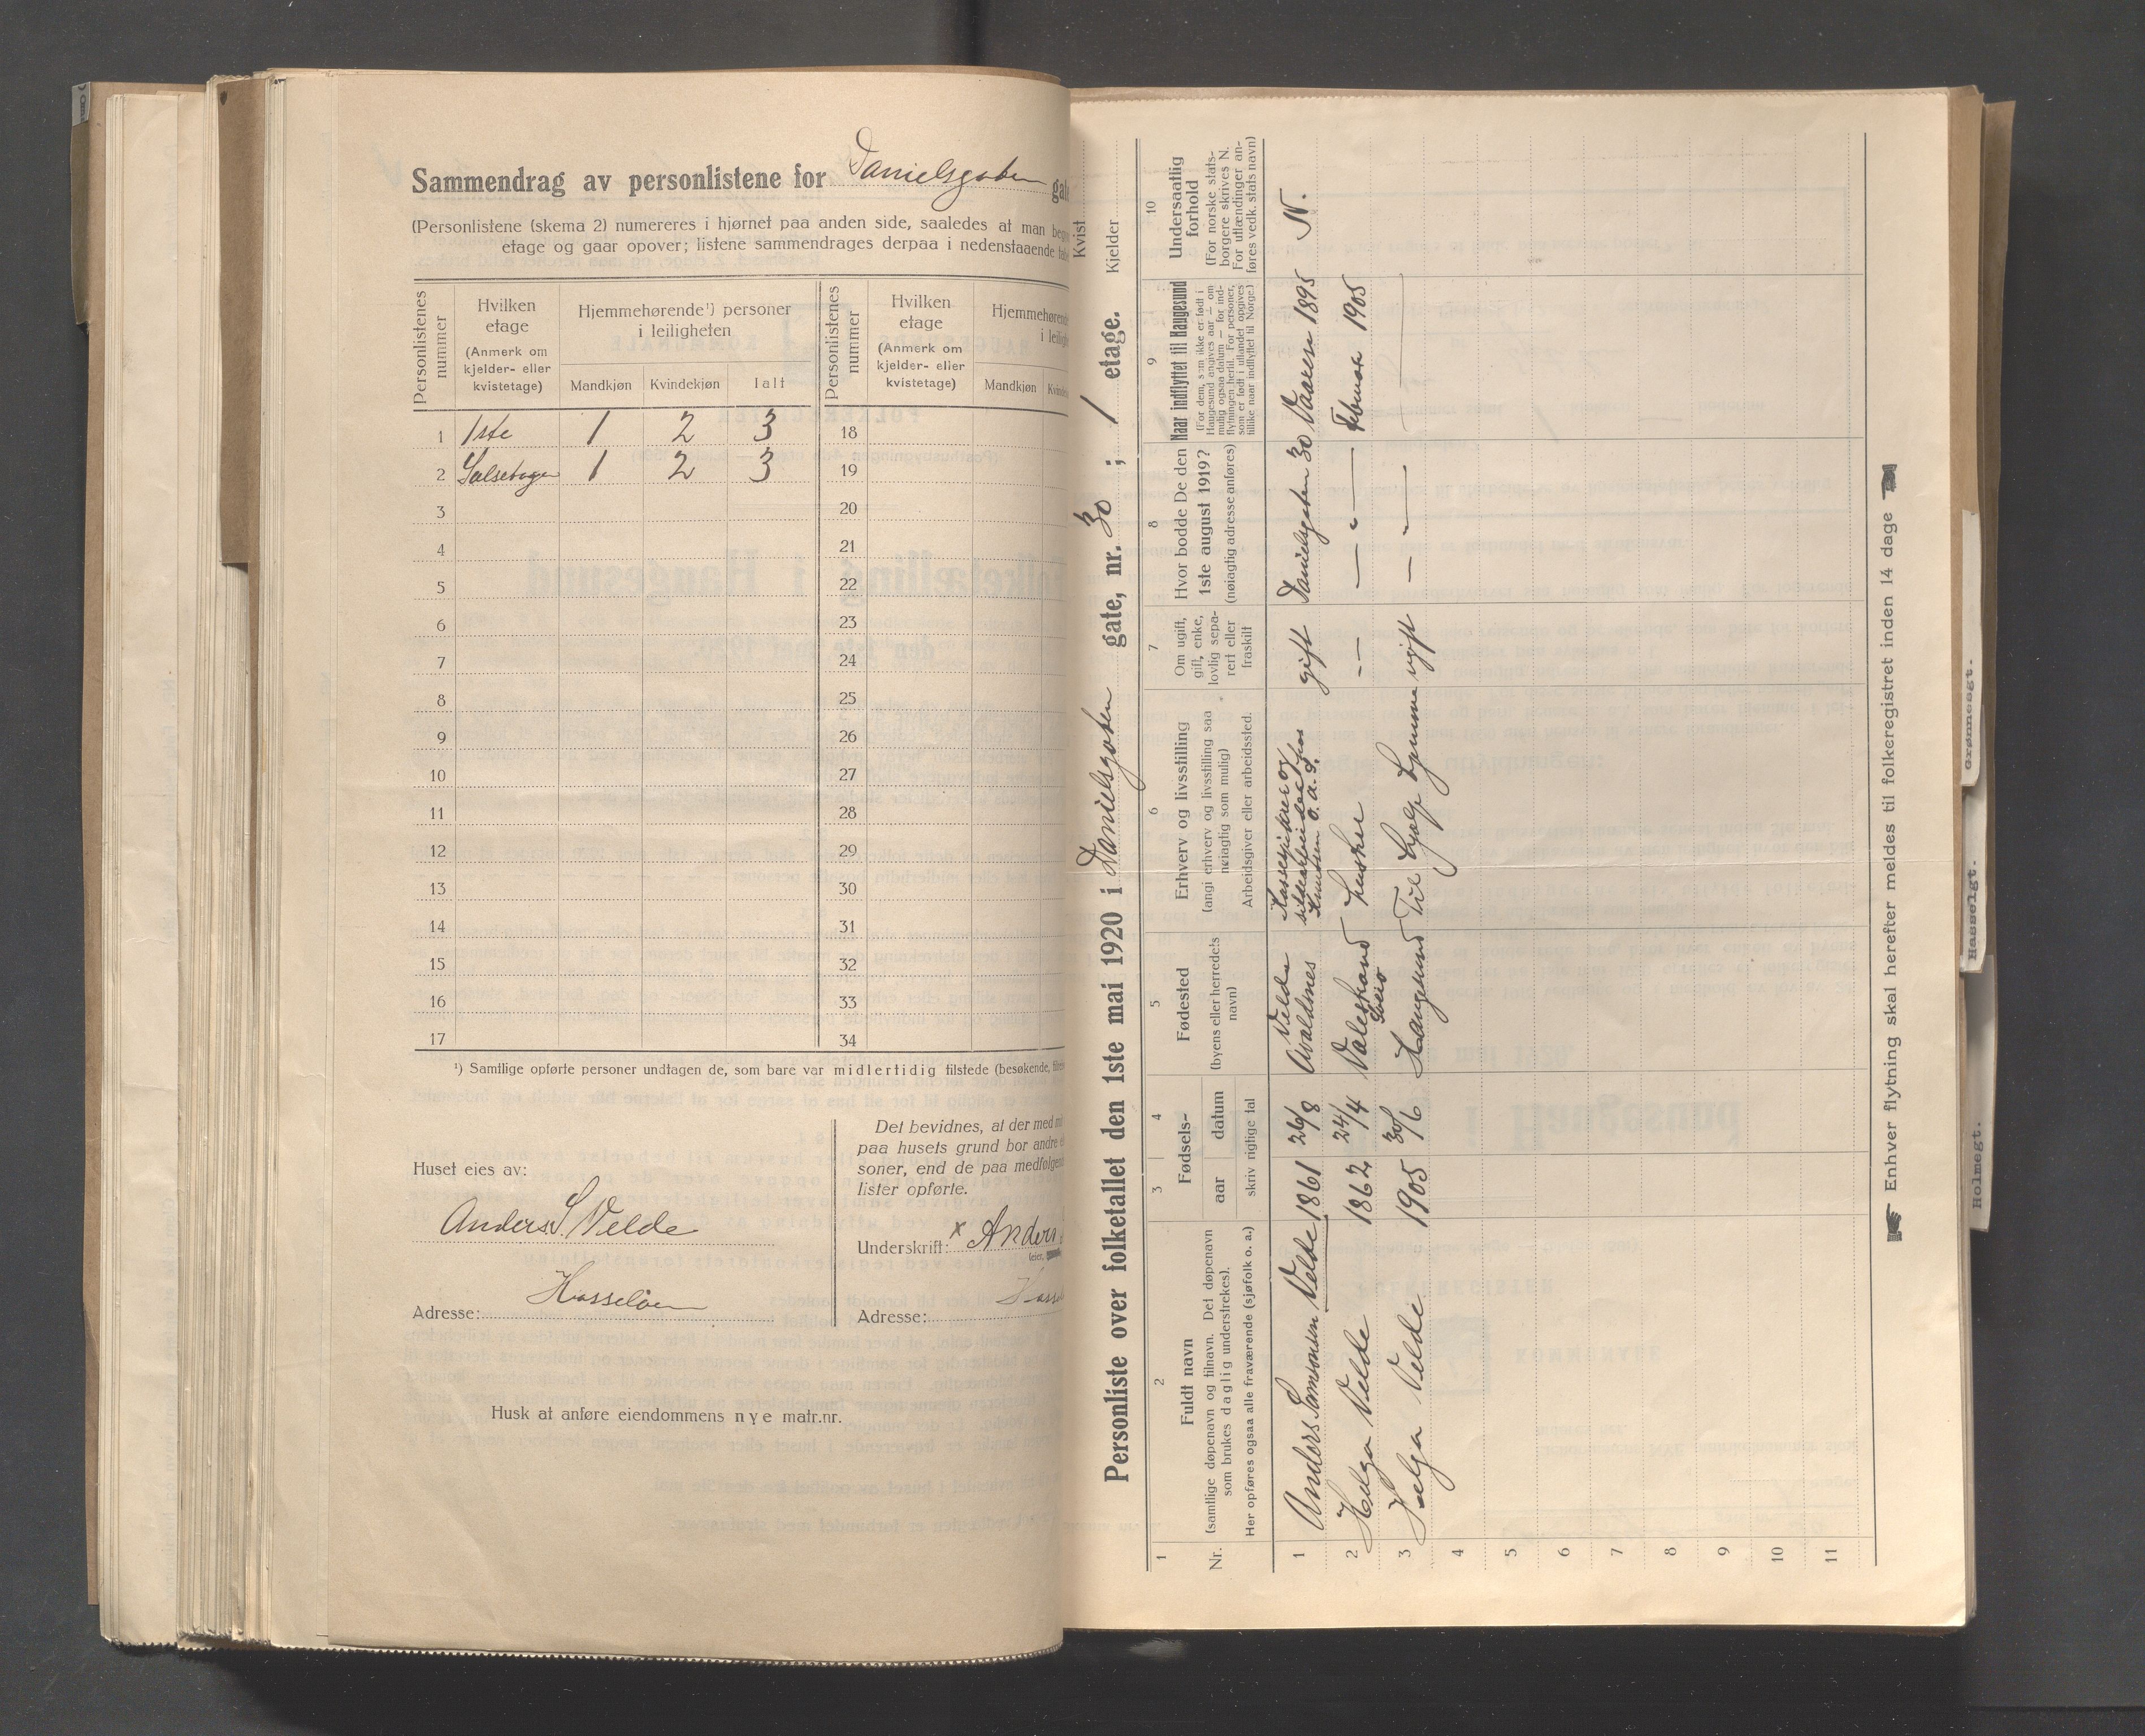 Sammendrag av personlistene for Danielsgaten gate
(Personlistene (skema 2) numereres i hjørnet paa anden side, saaledes at man
etage og gaar opover; listene sammendrages derpaa i nedenstaaende
Personlistenes nummer
Hvilken etage
(Anmerk om kjelder- eller kvistetage)
Hjemmehørende¹) personer i leiligheten
Mandkjøn Kvindekjøn Ialt
Personlistenes nummer
Hvilken etage
(Anmerk om kjelder- eller kvistetage)
Hjemmehørende
Mandkjøn
1 1ste 1 2 3 18
2 1 2 3 19
3 20
4 21
5 22
6 23
7 24
8 25
9 26
10 27
11 28
12 29
13 30
14 31
15 32
16 33
17 34
¹) Samtlige opførte personer undtagen de, som bare var midlertidig tilstede (besøkende,
Huset eies av:
Anders S Velde
Adresse: Hasseløen
Det bevidnes, at der med
paa husets grund bor andre
soner, end de paa medfølgende
lister opførte.
Underskrift: x Anders
(eier,
Adresse: Hassel
Husk at anføre eiendommens nye matr.nr.
Kvist
Kjelder
Personliste over folketallet den 1ste mai 1920 i Danielsgaten gate, nr. 30 ; 1 etage.
1 2 3 4 5 6 7 8 9 10
Nr.
Fuldt navn
(samtlige døpenavn og tilnavn. Det døpenavn
som brukes daglig understrekes).
Her opføres ogsaa alle fraværende (sjøfolk o. a.)
Fødsels-
aar datum
skriv rigtige tal
Fødested
(byens eller herredets
navn)
Erhverv og livsstilling
(angi erhverv og livsstilling saa
nøiagtig som mulig)
Arbeidsgiver eller arbeidssted.
Om ugift,
gift, enke,
lovlig sepa-
rert eller
fraskilt
Hvor bodde De den
1ste august 1919?
(nøiagtig adresse anføres)
Naar indflyttet til Haugesund
(For dem, som ikke er født i
Haugesund angives aar — om
mulig ogsaa datum — for ind-
flytningen hertil. For personer,
som er født i utlandet opgives
tillike naar indflyttet til Norge.)
Undersaatlig
forhold
(For norske stats-
borgere skrives N.
For utlændinger an-
føres vedk. stats navn)
1 Anders Samsonsen Velde 1861 26/8 Velde Avaldsnes gift Danielsgaten 30 Vaaren 1895 N.
2 Helga Velde 1862 24/4 Valestrand Sveio Huskue — — — " — Februar 1905
3 Helga Velde 1905 30/6 Haugesund Til Hjelp Hjemme ugift — " — —
4
5
6
7
8
9
10
11
Enhver flytning skal herefter meldes til folkeregistret inden 14 dage
Grønnesgt.
Hasselgt.
Holmegt.